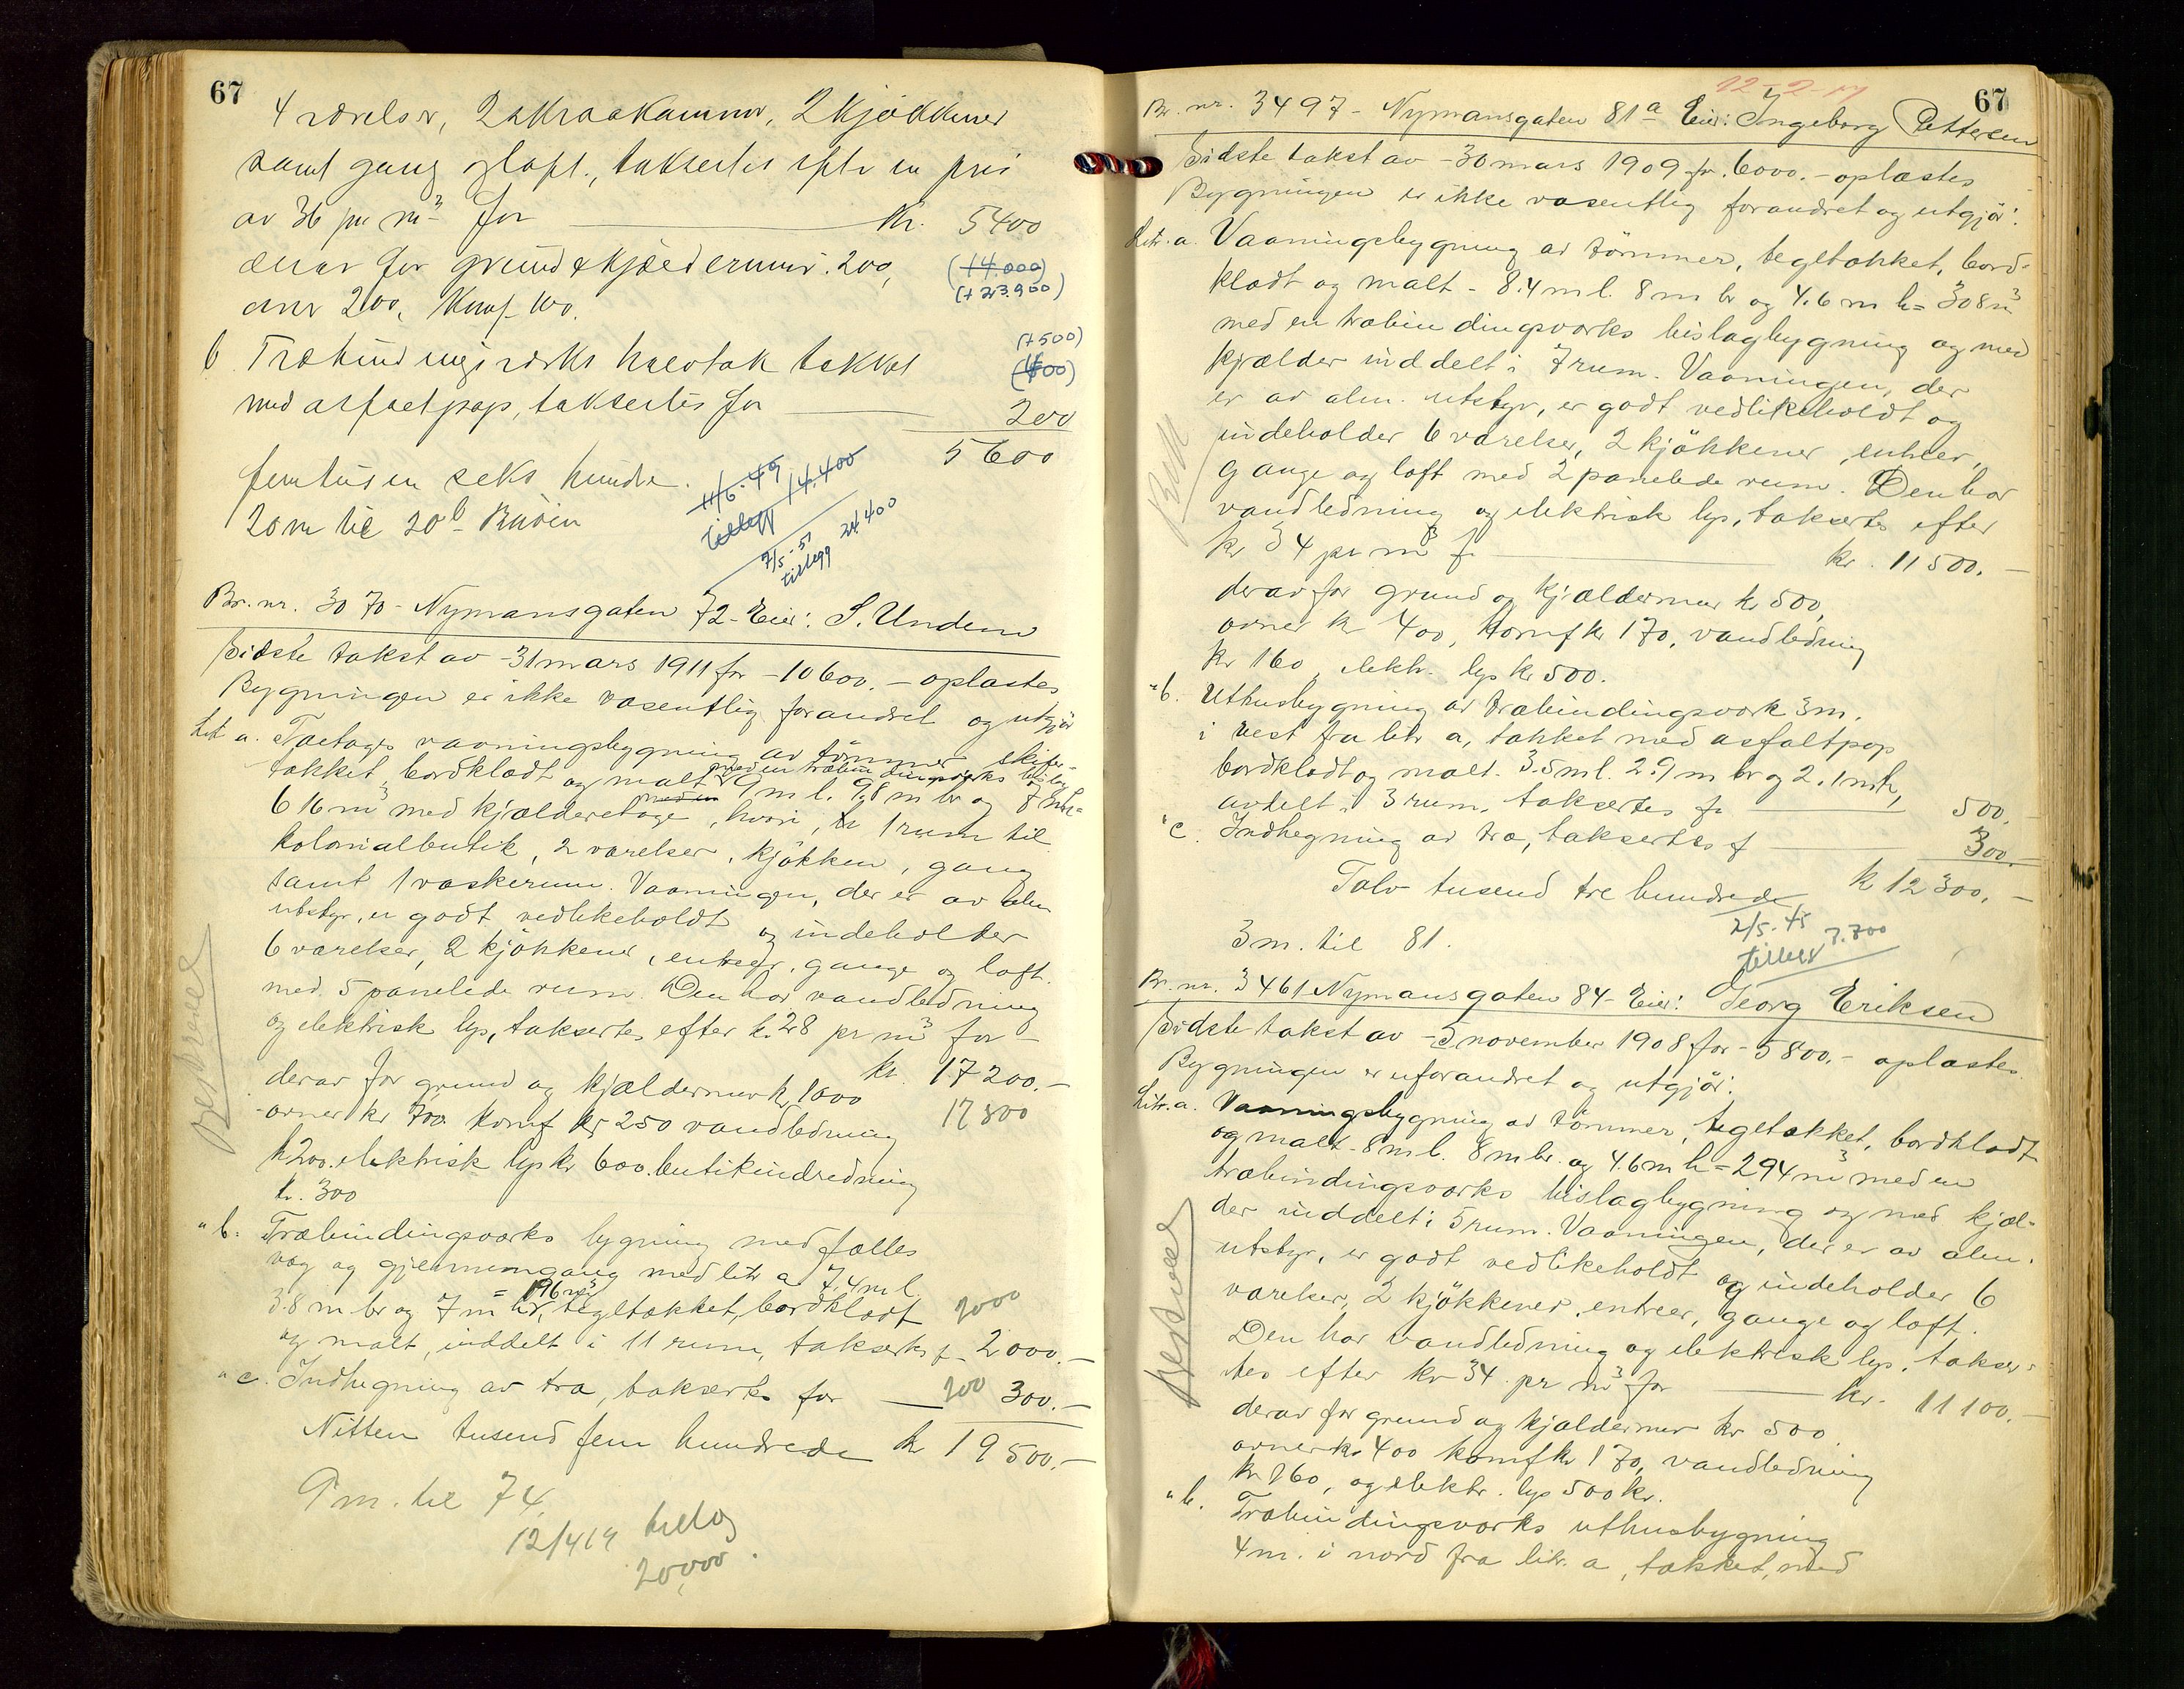 67
4 værelser, 2 skraakammer, 2 kjøkkener
samt gang og loft, taksertes efter en pris
av 36 pr m³ for kr. 5400
derav for grund & kjeldermur 200,
(14.000)
(+ 23.900)
ovner 200, Komf. 100.
(+500)
(400)
b Træbindingsværks halvtak tækket
med asfaltpap, taksertes for 200
5600
femtusen seks hundre.
20 m til 20b
11/6-49
tillegg 14.400
2/5-51
tillegg 24.400
Br. nr. 3070 - Nymansgaten 72 - Eier: S. Undem
Sidste takst av - 31 mars 1911 for - 10600. - oplæstes
Bygningen er ikke væsentlig forandret og utgjør
Lit a. Toetages vaaningsbygning av tømmer skifer-
tækket, bordklædt og malt med en træbindingsværks bislag
9 m l. 9,8 m br og 7 m h =
616 m³ med kjælderetage, hvori, 1 rum til
kolonialbutik, 2 værelser, kjøkken, gang
samt 1 vaskerum. Vaaningen, der er av alm
utstyr, er godt vedlikeholdt og indeholder
6 værelser, 2 kjøkkener, entreer, gange og loft
med 5 panelede rum. Den har vandledning
og elektrisk lys, taksertes efter kr. 28 pr m³ for -
kr. 17200. -
derav for grund og kjældermur kr 1000
17800
ovner kr 700 komf kr 250 vandledning
kr 200. elektrisk lys kr 600. butikindredning
kr. 300
" b. Træbindingsværks bygning med fælles
væg og gjennemgang med litr a 7.4 m l.
= 196 m³
3.8 m br og 7 m h, tegltækket, bordklædt 2000
og malt, inddelt i 11 rum, taksertes f - 2000. -
" c. Indhegning av træ, taksertes for 200 300. -
Nitten tusend fem hundrede kr 19500. -
9 m. til 74.
12/4 19 tillæg
20,000.
Beskrevet
67
12-2-17
Br. nr. 3497 - Nymansgaten 81a Eier: Ingeborg Pettersen
Sidste takst av - 30 mars 1909 for 6000. - oplæstes
Bygningen er ikke væsentlig forandret og utgjør:
Litr. a. Vaaningsbygning av tømmer, tegltækket, bord-
klædt og malt - 8.4 m l. 8 m br og 4.6 m h = 308 m³
med en træbindingsværks bislagbygning og med
kjælder inddelt i 7 rum. Vaaningen, der
er av alm. utstyr, er godt vedlikeholdt og
indeholder 6 værelser, 2 kjøkkener, entreer,
gange og loft med 2 panelede rum. Den har
vandledning og elektrisk lys, taksertes efter
kr 34 pr m³ f kr. 11500. -
derav for grund og kjældermur kr 500,
ovner kr 400, komf kr 170, vandledning
kr 160, elektr. lys kr 500.
" b. Uthusbygning av træbindingsværk 3 m.
i vest fra litr a, tækket med asfaltpap
bordklædt og malt. 3.5 m l. 2.9 m br og 2.1 m h,
avdelt i 3 rum. taksertes for 500. -
" c. Indhegning av træ, taksertes f 300. -
Tolv tusend tre hundrede kr 12300. -
3 m. til 81.
2/5-45
tillegg 7.700
Br. nr. 3461 Nymansgaten 84 - Eier: Georg Eriksen
Sidste takst av - 5 november 1908 for - 5800. - oplæstes
Bygningen er uforandret og utgjør:
Litr. a. Vaaningsbygning av tømmer, tegltækket, bordklædt
og malt - 8 m l. 8 m br. og 4.6 m h = 294 m³ med en
træbindingsværks bislagbygning og med kjæl-
der inddelt i 5 rum. Vaaningen, der er av alm.
utstyr, er godt vedlikeholdt og indeholder 6
værelser, 2 kjøkkener, entreer, gange og loft.
Den har vandledning og elektrisk lys, takser-
tes efter kr 34 pr m³ for kr. 11100. -
derav for grund og kjældermur kr 500
ovner kr 400 komf kr 170, vandledning
kr 160, og elektr. lys 500 kr.
" b. Træbindingsværks uthusbygning
4 m. i nord fra litr. a, tækket, med
Beskrevet